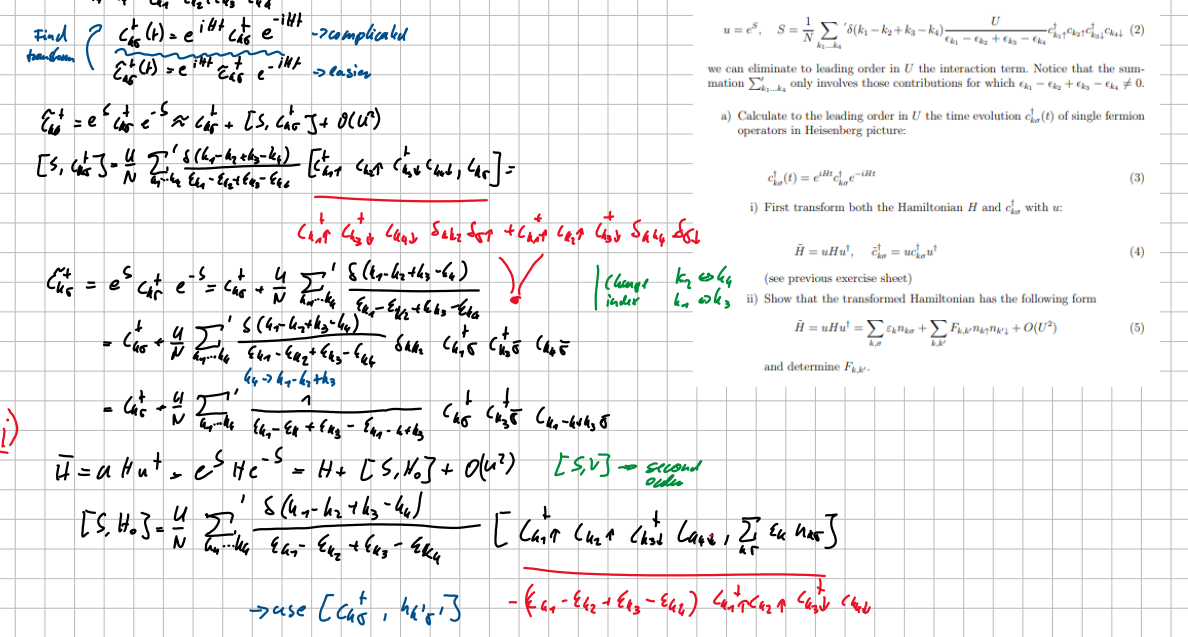 Find
transform
c†_{kσ}(t) = e^{iHt} c†_{kσ} e^{-iHt} → complicated
c̃†_{kσ}(t) = e^{iHt} c̃†_{kσ} e^{-iHt} → easier
c̃†_{kσ} = e^S c†_{kσ} e^{-S} ≈ c†_{kσ} + [S, c†_{kσ}] + O(U²)
[S, c†_{kσ}] = U/N Σ'_{k₁...k₄} δ(k₁-k₂+k₃-k₄)/(ε_{k₁}-ε_{k₂}+ε_{k₃}-ε_{k₄}) [c†_{k₁↑} c_{k₂↑} c†_{k₃↓} c_{k₄↓}, c_{kσ}] =
c†_{k₁↑} c†_{k₃↓} c_{k₄↓} δ_{kk₂} δ_{σ↑} + c†_{k₁↑} c_{k₂↑} c†_{k₃↓} δ_{kk₄} δ_{σ↓}
c̃†_{kσ} = e^S c†_{kσ} e^{-S} = c†_{kσ} + U/N Σ'_{k₁...k₄} δ(k₁-k₂+k₃-k₄)/(ε_{k₁}-ε_{k₂}+ε_{k₃}-ε_{k₄})
change k₂ ⇔ k₄
index k₁ ⇔ k₃
= c†_{kσ} + U/N Σ'_{k₁...k₄} δ(k₁-k₂+k₃-k₄)/(ε_{k₁}-ε_{k₂}+ε_{k₃}-ε_{k₄}) δ_{kk₂} c†_{k₁σ} c†_{k₃σ̄} c_{k₄σ̄}
k₄ → k₁-k₂+k₃
= c†_{kσ} + U/N Σ'_{k₁...k₄} 1/(ε_{k₁}-ε_k+ε_{k₃}-ε_{k₁-k+k₃}) c†_{k₁σ} c†_{k₃σ̄} c_{k₁-k+k₃σ̄}
i)
H̄ = u H u† = e^S H e^{-S} = H + [S, H₀] + O(U²) [S,V] → second
order
[S, H₀] = U/N Σ'_{k₁...k₄} δ(k₁-k₂+k₃-k₄)/(ε_{k₁}-ε_{k₂}+ε_{k₃}-ε_{k₄}) [c†_{k₁↑} c_{k₂↑} c†_{k₃↓} c_{k₄↓}, Σ_{kσ} ε_k n_{kσ}]
→ use [c†_{kσ}, n_{k'σ'}] -(ε_{k₁}-ε_{k₂}+ε_{k₃}-ε_{k₄}) c†_{k₁↑} c_{k₂↑} c†_{k₃↓} c_{k₄↓}
u = e^S, S = 1/N Σ'_{k₁...k₄} δ(k₁ − k₂ + k₃ − k₄) U/(ε_{k₁} − ε_{k₂} + ε_{k₃} − ε_{k₄}) c†_{k₁↑}c_{k₂↑}c†_{k₃↓}c_{k₄↓} (2)
we can eliminate to leading order in U the interaction term. Notice that the sum-
mation Σ'_{k₁...k₄} only involves those contributions for which ε_{k₁} − ε_{k₂} + ε_{k₃} − ε_{k₄} ≠ 0.
a) Calculate to the leading order in U the time evolution c†_{kσ}(t) of single fermion
operators in Heisenberg picture:
c†_{kσ}(t) = e^{iHt}c†_{kσ}e^{−iHt} (3)
i) First transform both the Hamiltonian H and c†_{kσ} with u:
H̃ = uHu†, c̃†_{kσ} = uc†_{kσ}u† (4)
(see previous exercise sheet)
ii) Show that the transformed Hamiltonian has the following form
H̃ = uHu† = Σ_{k,σ} ε_k n_{kσ} + Σ_{k,k'} F_{k,k'} n_{k↑}n_{k'↓} + O(U²) (5)
and determine F_{k,k'}.